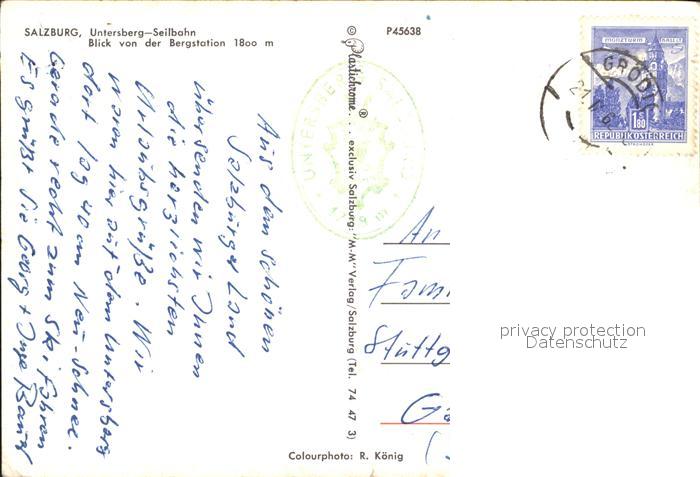 SALZBURG, Untersberg—Seilbahn
Blick von der Bergstation 18oo m
Aus dem schönen
Salzburger Land
übersenden wir Ihnen
die herzlichsten
Urlaubsgrüße. Wir
waren hier auf dem Untersberg
dort lag 40 cm Neu-Schnee.
Gerade recht zum Ski fahren
Es grüßt Sie Georg + Inge
© Plastichrome® . . . exclusiv Salzburg: "M-M" Verlag/Salzburg (Tel. 74 47 3)
P45638
UNTERSBERG
MÜNZTURM HALL
GRÖDIG
S 1.80
REPUBLIK ÖSTERREICH
An
Fam
Stuttg
privacy protection
Datenschutz
Colourphoto: R. König